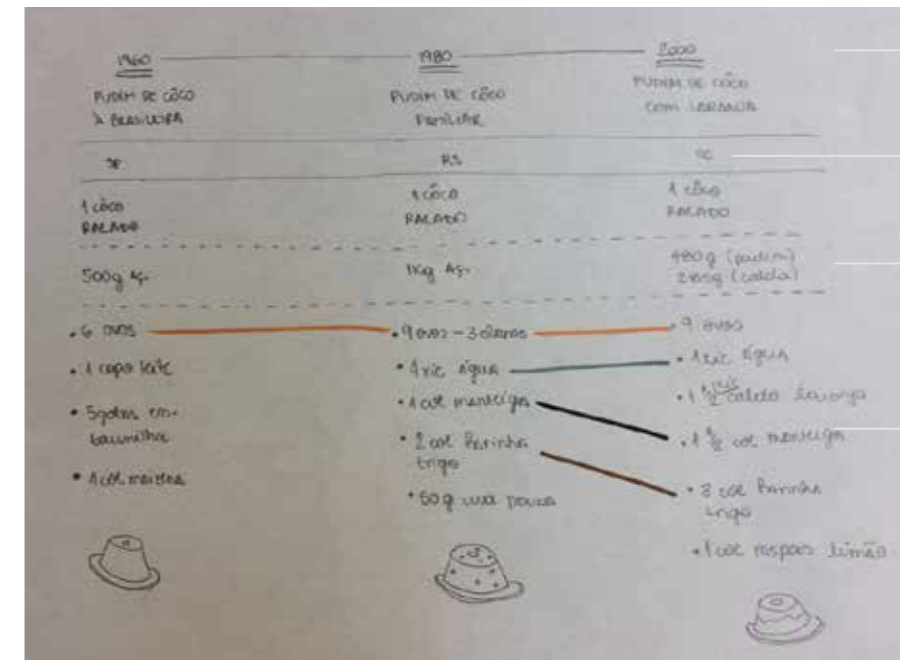 1960
PUDIM DE CÔCO
À BRASILEIRA
SP
1 côco
RALADO
500g Aç.
• 6 ovos
• 1 copo leite
• 5 gotas es-
baunilha
• 1 col maisena
1980
PUDIM DE CÔCO
FAMILIAR
RS
1 côco
RALADO
1Kg Aç.
• 9 ovos - 3 claras
• 1 xíc água
• 1 col manteiga
• 2 col farinha
trigo
• 50g uva passa
2000
PUDIM DE CÔCO
COM LARANJA
SC
1 côco
RALADO
480g (pudim)
(calda)
• 9 ovos
• 1 xíc água
• 1 1/2 xíc caldo laranja
• 1 1/2 col manteiga
• 3 col farinha
trigo
• 1 col raspas limão